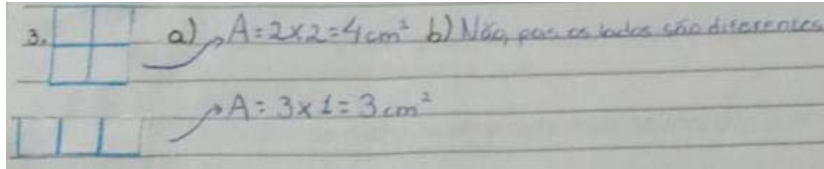 3. a) A = 2 x 2 = 4 cm² b) Não, pois os lados são diferentes
A = 3 x 1 = 3 cm²